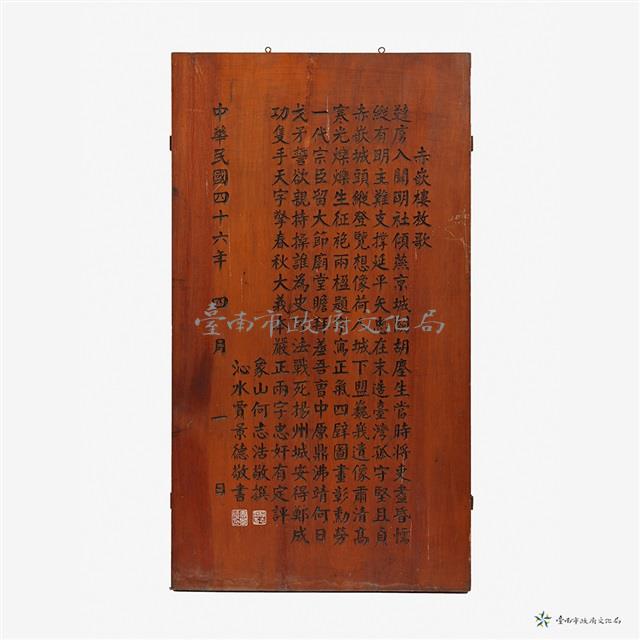 赤嵌樓放歌
韃虜入關明社傾燕京城闕胡塵生當時將吏盡昏懦
縱有明主難支撐延平矢志在末造臺灣孤守堅且貞
赤嵌城頭縱登覽想像荷人城下盟巍峩遺像肅清高
寒光爍爍生征袍兩楹題句寫正氣四壁圖畫彰勳勞
一代宗臣留大節廟堂瞻拜羞吾曹中原鼎沸靖何日
戈矛誓欲親持操誰為史可法戰死揚州城安得鄭成
功隻手天宇擎春秋大義本嚴正兩字忠奸有定評
象山何志浩敬撰
沁水賈景德敬書
中華民國四十六年四月一日
臺南市政府文化局
臺南市政府文化局